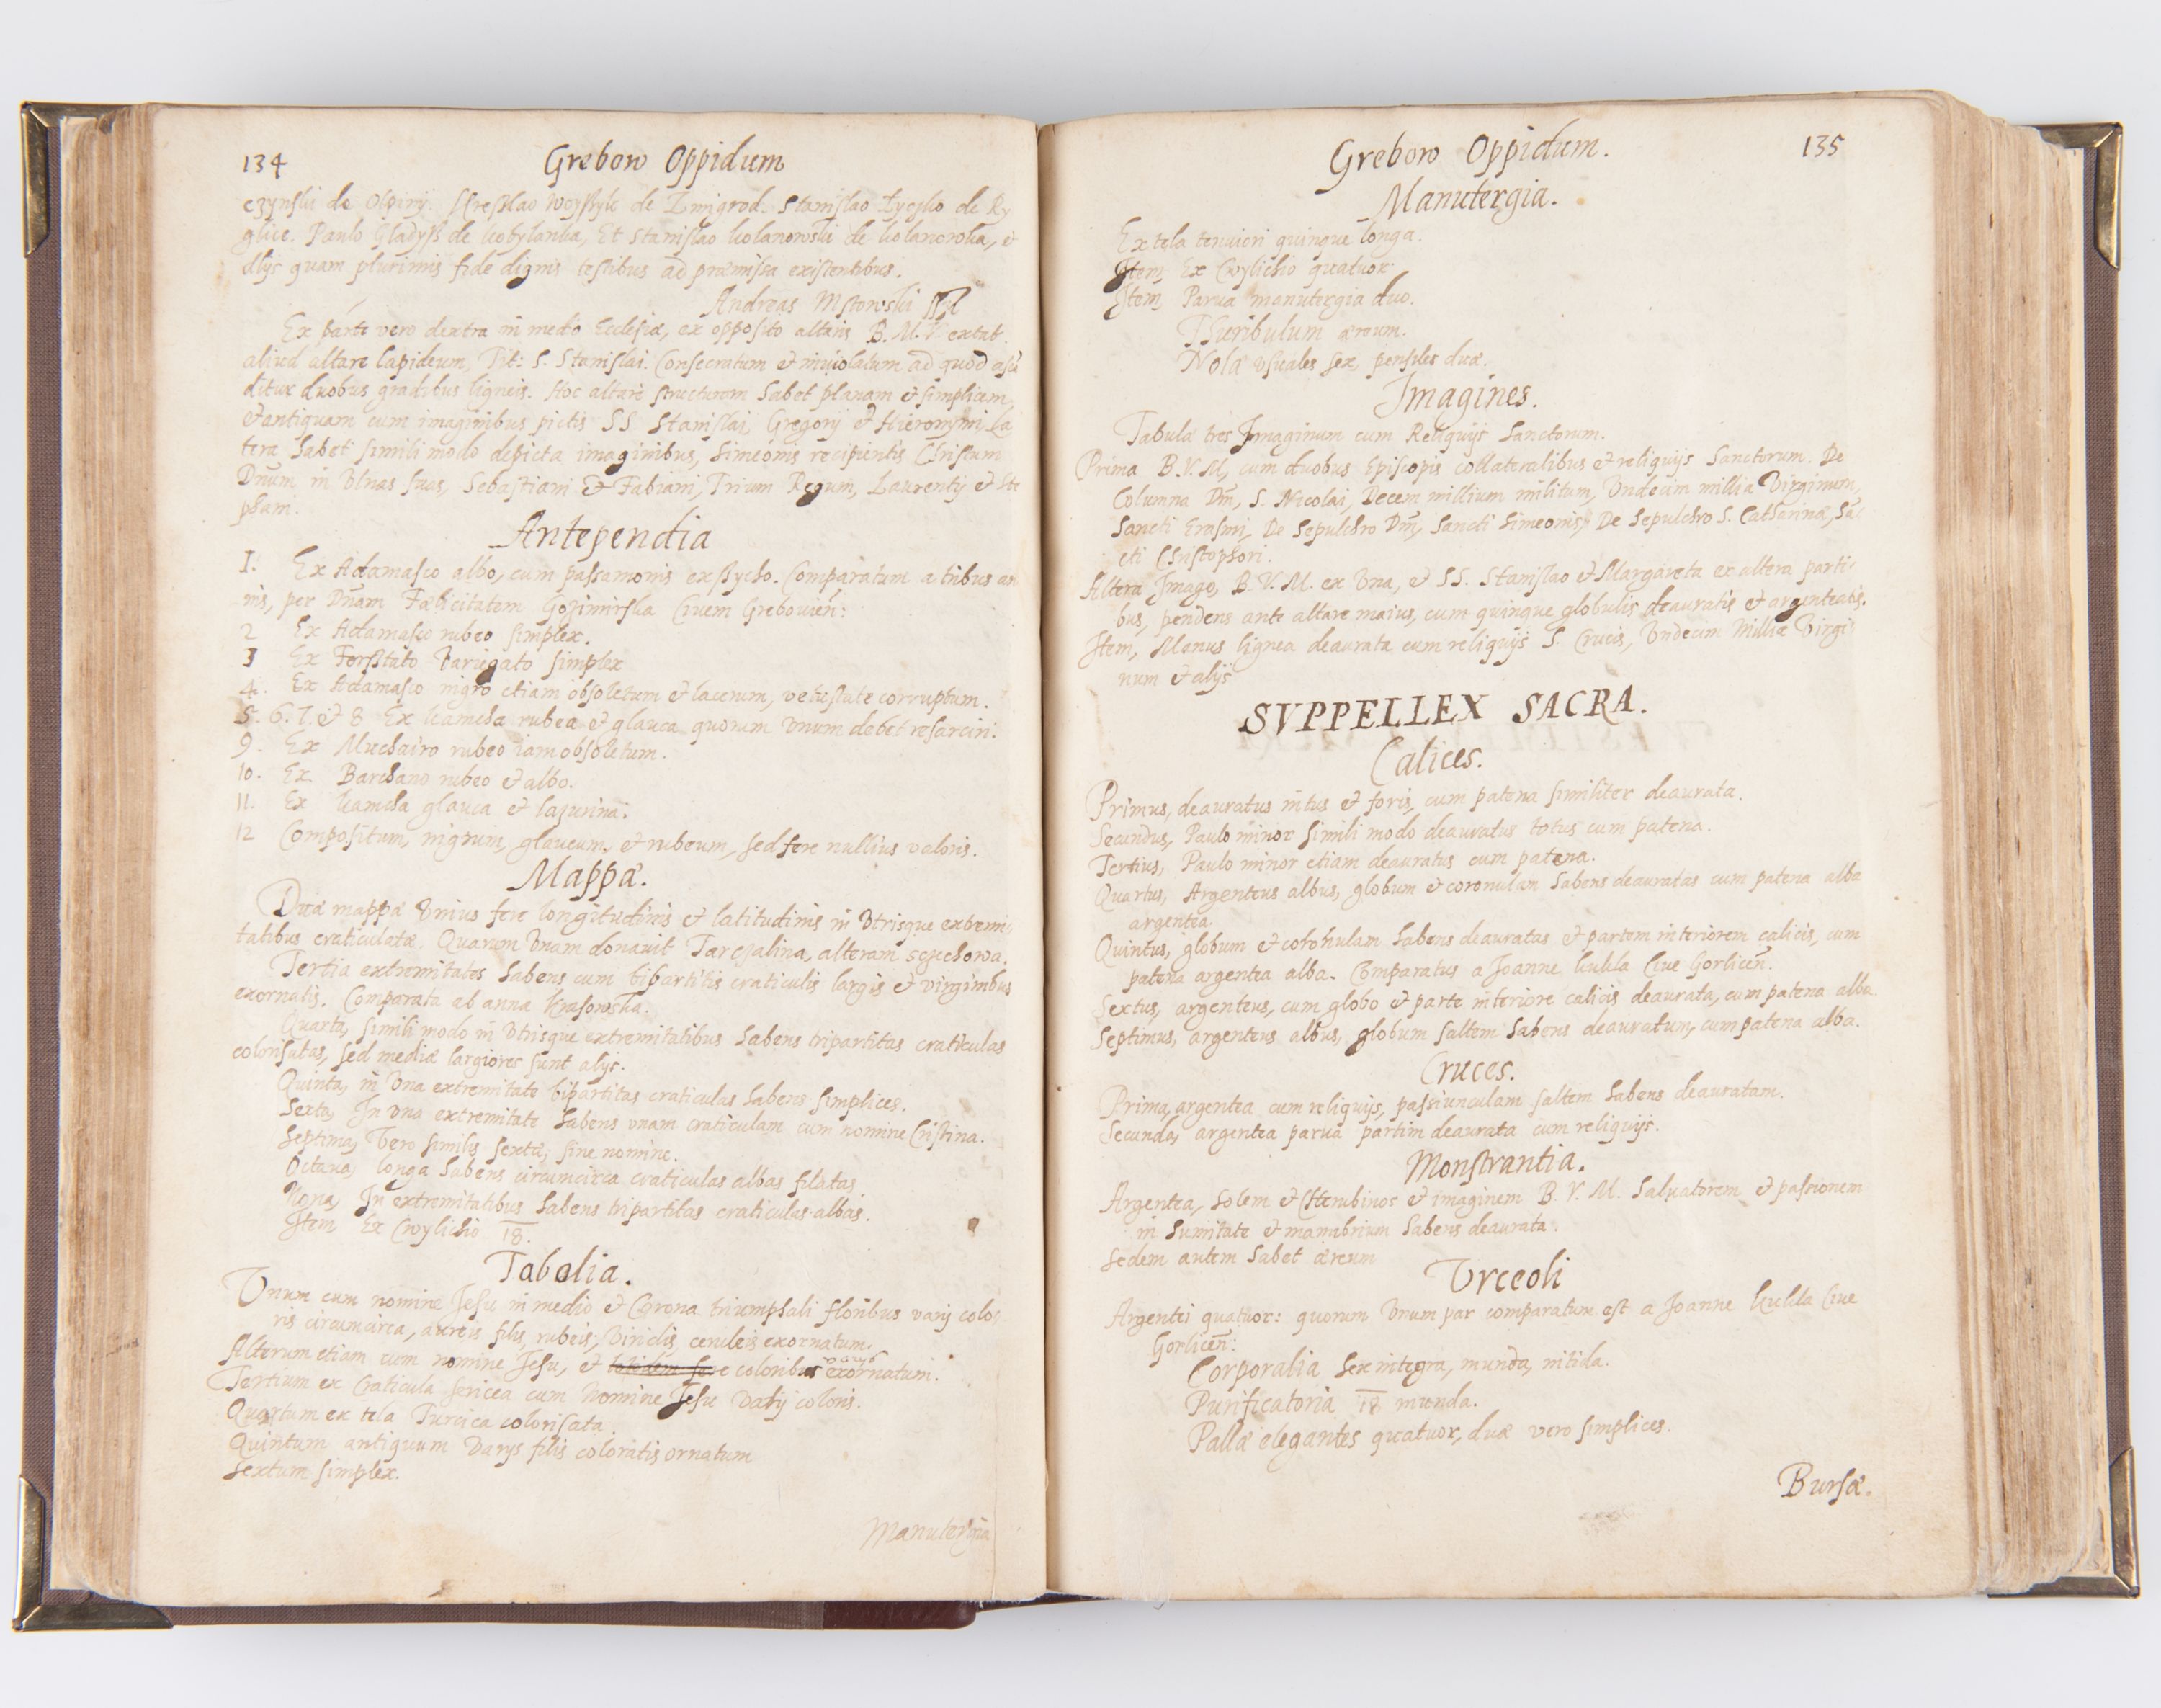 134
Grebow Oppidum
czynski de Olpiny. Stresslao Woyssyk de Zmigrod. Stanislao Łyczko de Ry
glice. Paulo Gladyss de Kobylanka, Et Stanislao Kolanowski de Kolanowka, &
Alijs quam plurimis fide dignis testibus ad præmissa existentibus.
Andreas Mstowski
Ex parte vero dextra in medio Ecclesiæ, ex opposito altaris B. M. V. extat
aliud altare lapideum, Tit: S. Stanislai. Consecratum & inviolatum ad quod ascē
ditur duobus gradibus ligneis. Hoc altare structuram habet planam & simplicem
& antiquam cum imaginibus pictis SS Stanislai, Gregorij & Hieronymi. La
tera habet simili modo depicta imaginibus, Simeonis recipientis Christum
Dnum in Vlnas suas, Sebastiani & Fabiani, Trium Regum, Laurentij & Ste
phani.
Antependia
1. Ex Adamasco albo, cum passamonis ex ssycho. Comparatum a tribus an
nis, per Dnam Fælicitatem Gozimirska Civem Grebovien:
2 Ex Adamasco rubeo simplex.
3 Ex Forsztato Variegato simplex
4. Ex Adamasco nigro etiam obsoletum & lacerum, vetustate corruptum.
5. 6. 7. & 8 Ex kamcha rubea & glauca quorum Vnum debet resarciri.
9. Ex Muchairo rubeo iam obsoletum.
10. Ex Barchano rubeo & albo.
11. Ex kamcha glauca & lazurina.
12 Compositum, nigrum, glaucum, & rubeum, sed fere nullius valoris.
Mappæ.
Duæ mappæ Vnius fere longitudinis & latitudinis in Vtrisque extremi
tatibus craticulatæ. Quarum Vnam donavit Tarczalina, alteram
Tertia extremitates habens cum bipartitis craticulis largis & virginibus
exornatis. Comparata ab anna Krasowska.
Quarta, simili modo in Vtrisque extremitatibus habens tripartitas craticulas
colorisatas, sed mediæ largiores sunt alijs.
Quinta, in Vna extremitate bipartitas craticulas habens simplices.
Sexta, In vna extremitate habens vnam craticulam cum nomine Cristina.
Septima, Vero similis sextæ, sine nomine.
Octaua, longa habens circumcirca craticulas albas filatas
Nona, In extremitatibus habens tripartitas craticulas albas.
Item, Ex Cwylichio 18.
Tobalia.
Vnum cum nomine Jesu in medio & Corona triumphali floribus varij colo
ris circumcirca, aureis filis, rubeis, Viridis, ceruleis exornatum.
Alterum etiam cum nomine Jesu, & totidem fere coloribus exornatum.
Tertium ex Craticula sericea cum Nomine Jesu Varij coloris.
Quartum ex tela Turcica colorisata.
Quintum antiquum Varys filis coloratis ornatum
Sextum simplex.
Manutergia
Grebow Oppidum.
135
Manutergia.
Ex tela tenuiori quinque longa.
Item, Ex Cwylichio quatuor.
Item, Parua manutergia duo.
Thuribulum æreum.
Nolæ vsuales sex, pensiles duæ.
Imagines.
Tabulæ tres Imaginum cum Reliquijs Sanctorum.
Prima B.V.M, cum duobus Episcopis collateralibus & reliquijs Sanctorum. De
Columna Dni, S. Nicolai, Decem millium militum, Vndecim millia Virginum,
Sancti Erasmi, De Sepulchro Dni, Sancti Simeonis, De Sepulchro S. Catharinæ, Sā
cti Christophori.
Altera Imago, B.V.M. ex Vna, & SS. Stanislao & Margareta ex altera parti
bus, pendens ante altare maius, cum quinque globulis deauratis & argenteatis.
Item, Manus lignea deaurata cum reliquijs S. Crucis, Vndecim Milliæ Virgi
num & alijs
SVPPELLEX SACRA.
Calices.
Primus, deauratus intus & foris, cum patena similiter deaurata.
Secundus, Paulo minor simili modo deauratus totus cum patena.
Tertius, Paulo minor etiam deauratus cum patena.
Quartus, Argenteus albus, globum & coronulam habens deauratas cum patena alba
argentea.
Quintus, globum & coronulam habens deauratas & partem interiorem calicis, cum
patena argentea alba. Comparatus a Joanne Kukla Ciue Gorlicen̄.
Sextus, argenteus, cum globo & parte interiore calicis deaurata, cum patena alba.
Septimus, argenteus albus, globum saltem habens deauratum, cum patena alba.
Cruces.
Prima, argentea cum reliquijs, passiunculam saltem habens deauratam.
Secunda, argentea parua partim deaurata cum reliquijs.
Monstrantia.
Argentea, Solem & Cherubinos & imaginem B. V. M. Saluatorem & passionem
in Sumitate & manubrium habens deaurata.
Sedem autem habet æream
Vrceoli
Argentei quatuor: quorum Vnum par comparatum est a Joanne Kukla Ciue
Gorlicen̄:
Corporalia Sex integra, munda, nitida.
Purificatoria 18 munda.
Pallæ elegantes quatuor, duæ vero simplices.
Bursæ.